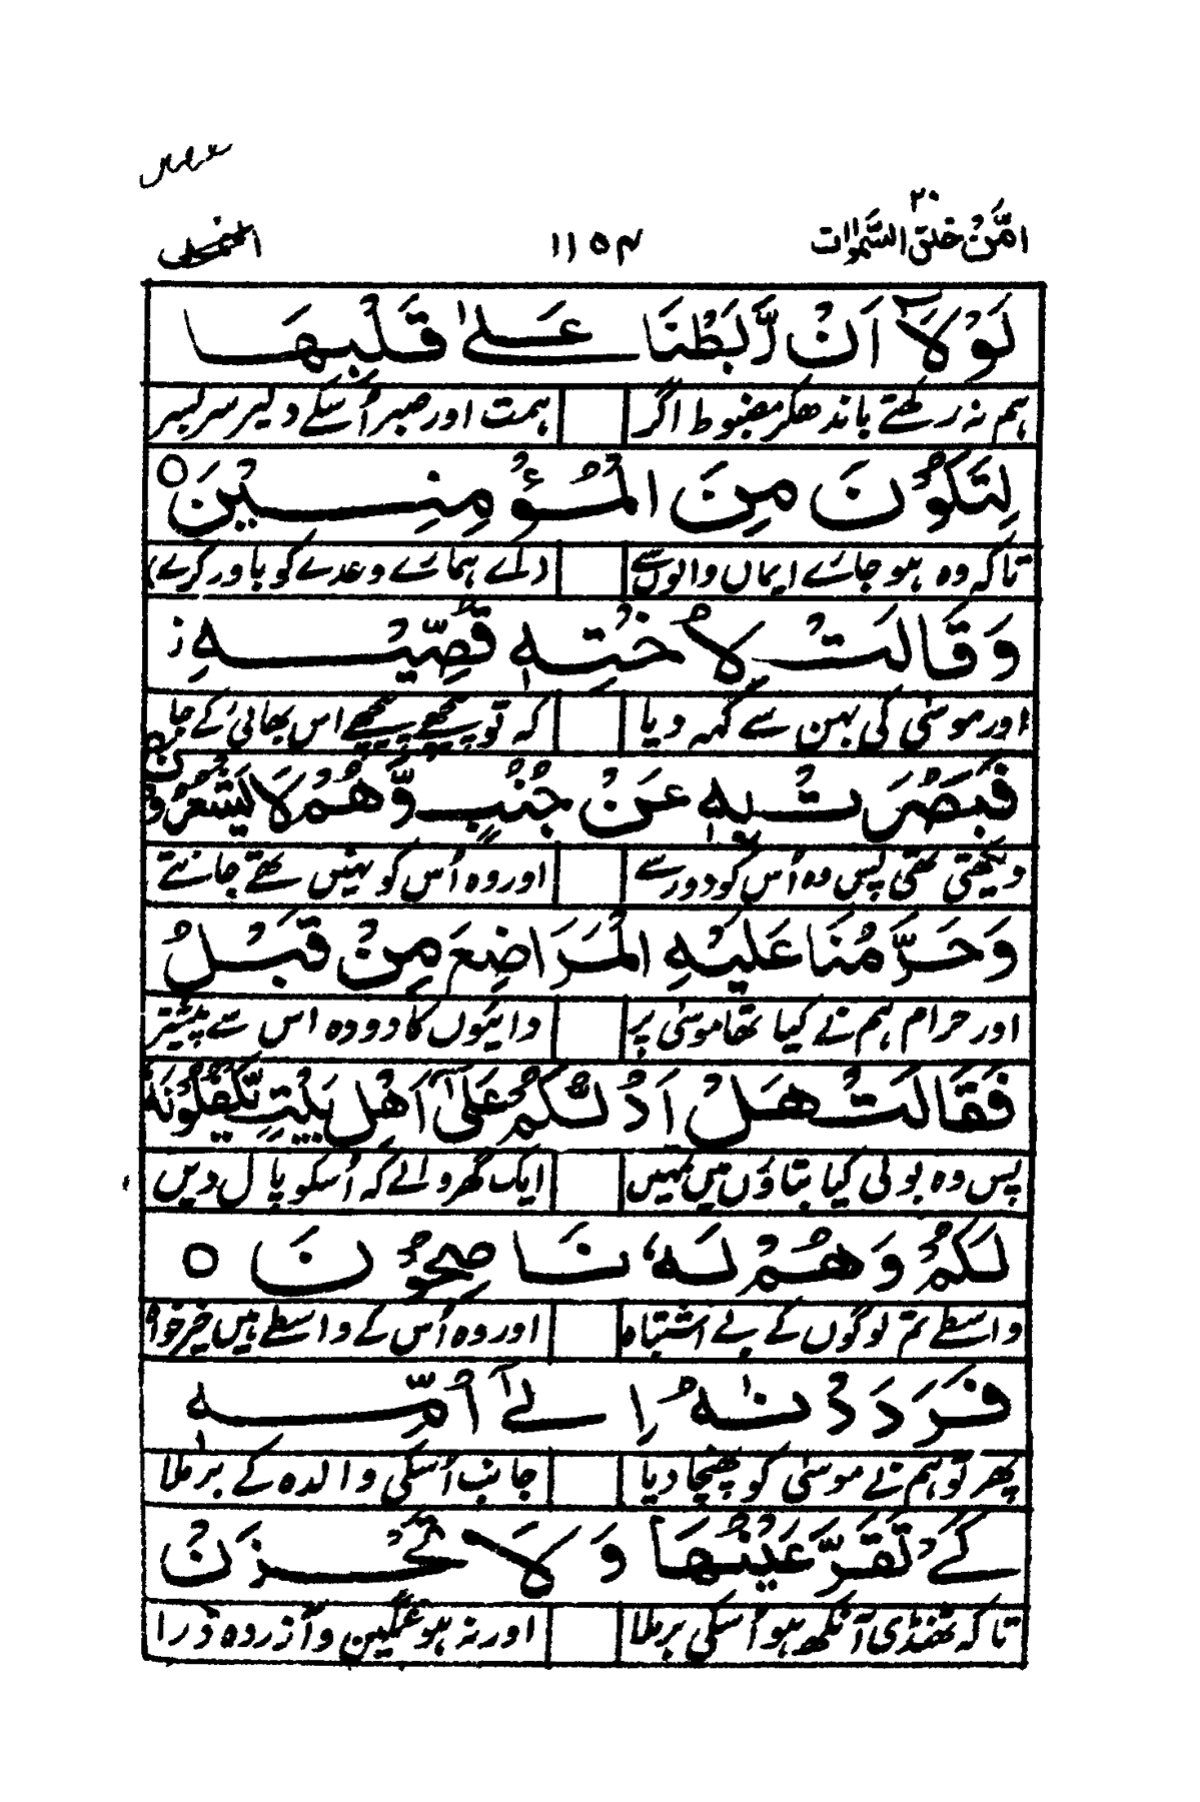 امّن خلق السّموات ۲۰
۱۱۵۴
لَوْلَآ اَنْ رَّبَطْنَا عَلٰى قَلْبِهَا
ہم نہ رکھتے باندھکر مضبوط اگر ہمت اور صبر اُسکے دلپر سر بسر
لِتَكُوْنَ مِنَ الْمُؤْمِنِيْنَ ○
تاکہ وہ ہو جائے ایماں والوں سے (دلسے ہمارے وعدے کو باور کرے)
وَقَالَتْ لِاُخْتِهٖ قُصِّيْهِ ز
اور موسیٰ کی بہن سے کہہ دیا کہ تو پیچھے پیچھے اس بھائی کے جا
فَبَصُرَتْ بِهٖ عَنْ جُنُبٍ وَّهُمْ لَا يَشْعُرُوْنَ
دیکھتی تھی پس وہ اُس کو دور سے اور وہ اُس کو نہیں تھے جانتے
وَحَرَّمْنَا عَلَيْهِ الْمَرَاضِعَ مِنْ قَبْلُ
اور حرام ہم نے کیا تھا موسیٰ پر دائیوں کا دودہ اس سے پیشتر
فَقَالَتْ هَلْ اَدُلُّكُمْ عَلٰٓى اَهْلِ بَيْتٍ يَّكْفُلُوْنَهٗ
پس وہ بولی کیا بتاؤں میں تمہیں ایک گھر والے کہ اُسکو پال دیں
لَكُمْ وَهُمْ لَهٗ نَاصِحُوْنَ ○
واسطے تم لوگوں کے بے اشتباہ اور وہ اُس کے واسطے ہیں خیرخواہ
فَرَدَدْنٰهُ اِلٰٓى اُمِّهٖ
پھر تو ہم نے موسیٰ کو پھنچا دیا جانب اُسکی والدہ کے برملا
كَےْ تَقَرَّ عَيْنُهَا وَلَا تَحْزَنْ
تاکہ ٹھنڈی آنکھ ہو اُسکی برملا اور نہ ہو غمگین و آزردہ ذرا